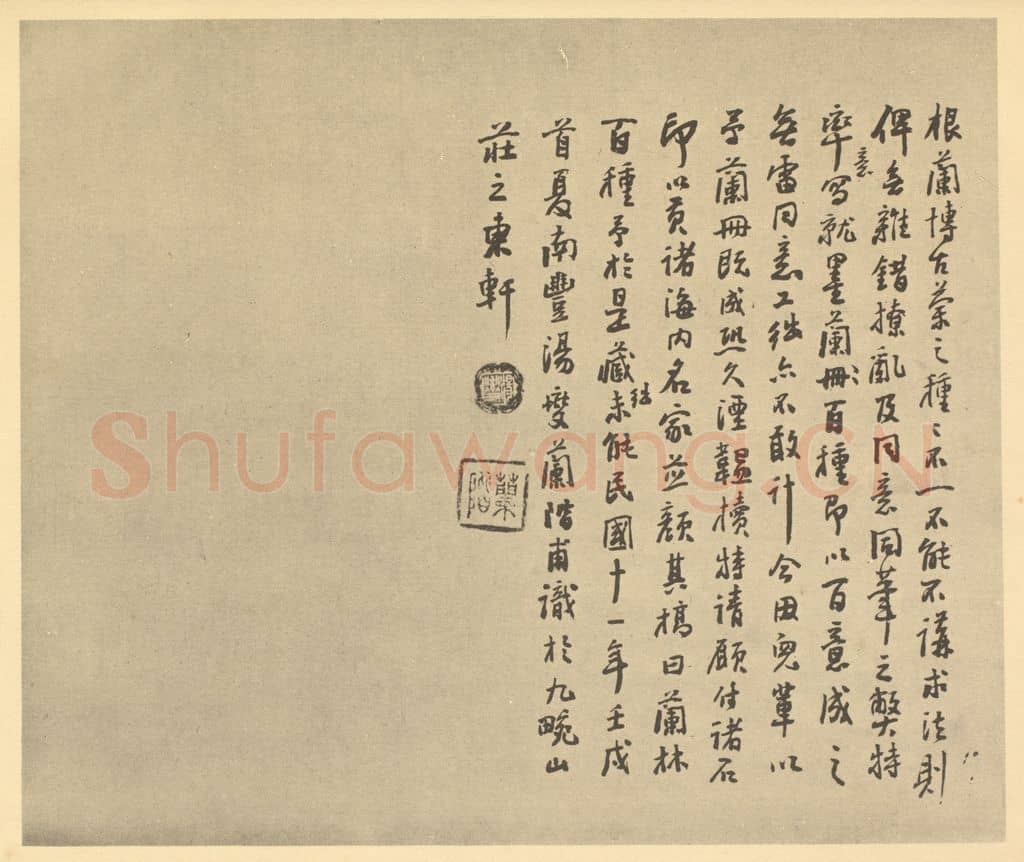 根蘭博古蘭之種〻不一不能不講求法則
俾無雜錯撩亂及同意同筆之弊特
率意寫就墨蘭冊〻百種即以百意成之
無雷同意工拙亦不敢計今因兒輩以
予蘭冊既成恐久湮韞櫝特請願付諸石
印以貢諸海內名家並顏其稿曰蘭林
百種予於是藏拙未能民國十一年壬戌
首夏南豐湯燮蘭階甫識於九畹山
莊之東軒
蘭階
Shufawang.CN